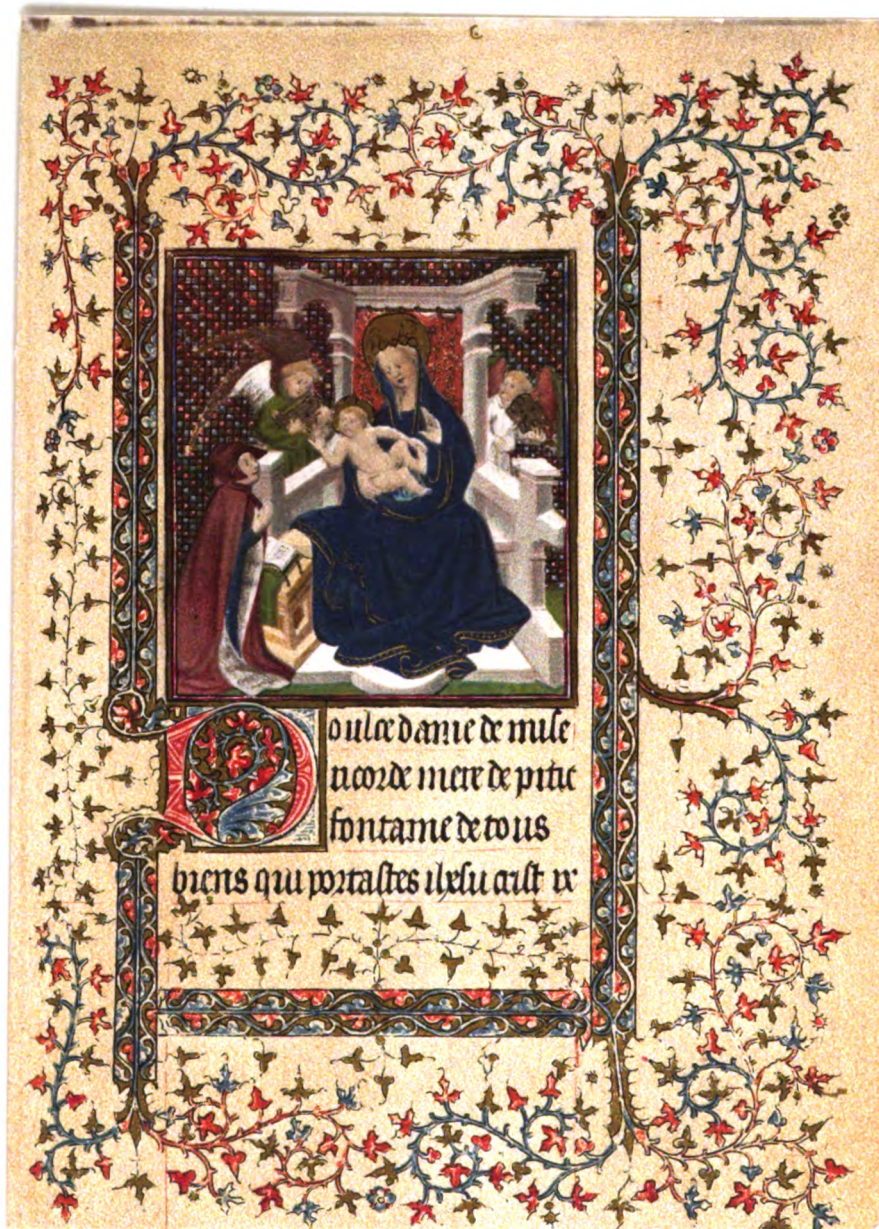 Doulce dame de mise
ricorde mere de pitie
fontaine de tous
biens qui portastes ihesu crist